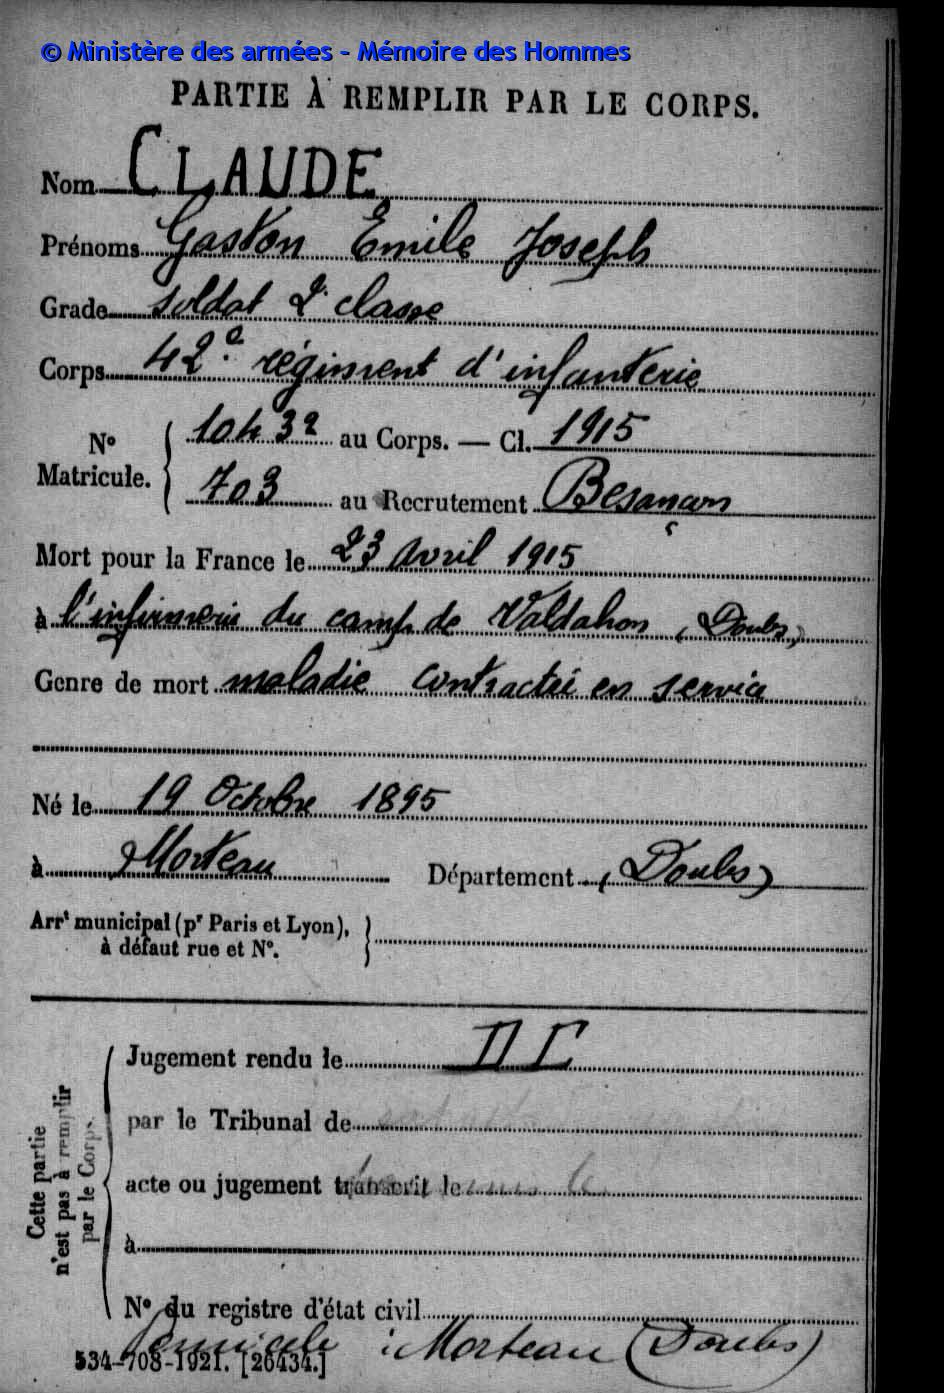 © Ministère des armées - Mémoire des Hommes
PARTIE À REMPLIR PAR LE CORPS.
Nom CLAUDE
Prénoms Gaston Emile Joseph
Grade soldat 2e classe
Corps 42e régiment d'infanterie
No Matricule. { 10432 au Corps. — Cl. 1915
703 au Recrutement Besançon
Mort pour la France le 23 Avril 1915
à l'infirmerie du camp de Valdahon (Doubs)
Genre de mort maladie contractée en service
Né le 19 Octobre 1895
à Morteau Département (Doubs)
Arrt municipal (pr Paris et Lyon), à défaut rue et No. }
Cette partie n'est pas à remplir par le Corps. {
Jugement rendu le
par le Tribunal de
acte ou jugement transcrit le
à
No du registre d'état civil
Domicile : Morteau (Doubs)
534-708-1921. [26434.]